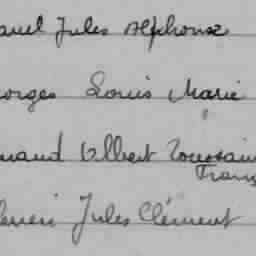 Jules Alphonse
Georges Louis Marie
Albert Toussain
Fran
Jules Clément